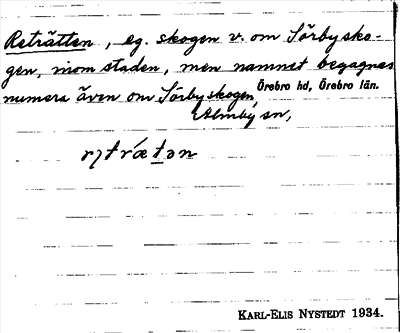 Reträtten, eg. skogen v. om Sörbysko-
gen, inom staden, men namnet begagnas
numera även om Sörbyskogen, Örebro hd, Örebro län.
Almby sn,
KARL-ELIS NYSTEDT 1934.